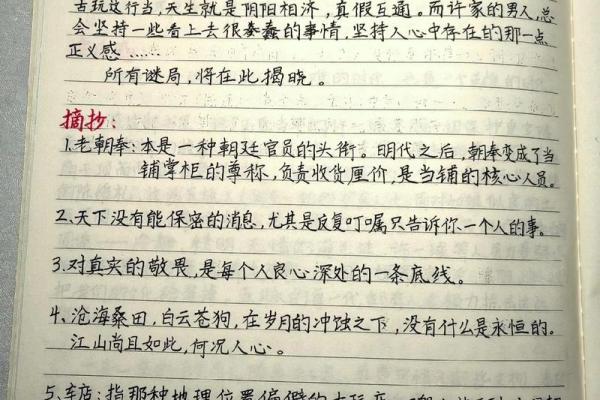 古玩这行当,天生就是阴阳相济,真假互通。而许家的男人,总
会坚持一些看上去很愚蠢的事情,坚持人心中存在的那一点
正义感……
所有谜局,将在此,揭晓。
摘抄:
1.老朝奉:本是一种朝廷官员的头衔。明代之后,朝奉变成了当
铺掌柜的尊称,负责收货估价,是当铺的核心人员。
2、天下没有能保密的消息,尤其是反复叮嘱只告诉你一个人的事。
3.对真实的敬畏,是每个人良心深处的一条底线。
4、沧海桑田,白云苍狗,在岁月的冲蚀之下,没有什么是永恒的。
江山尚且如此,何况人心。
5、车店:指那种地理位置偏僻的